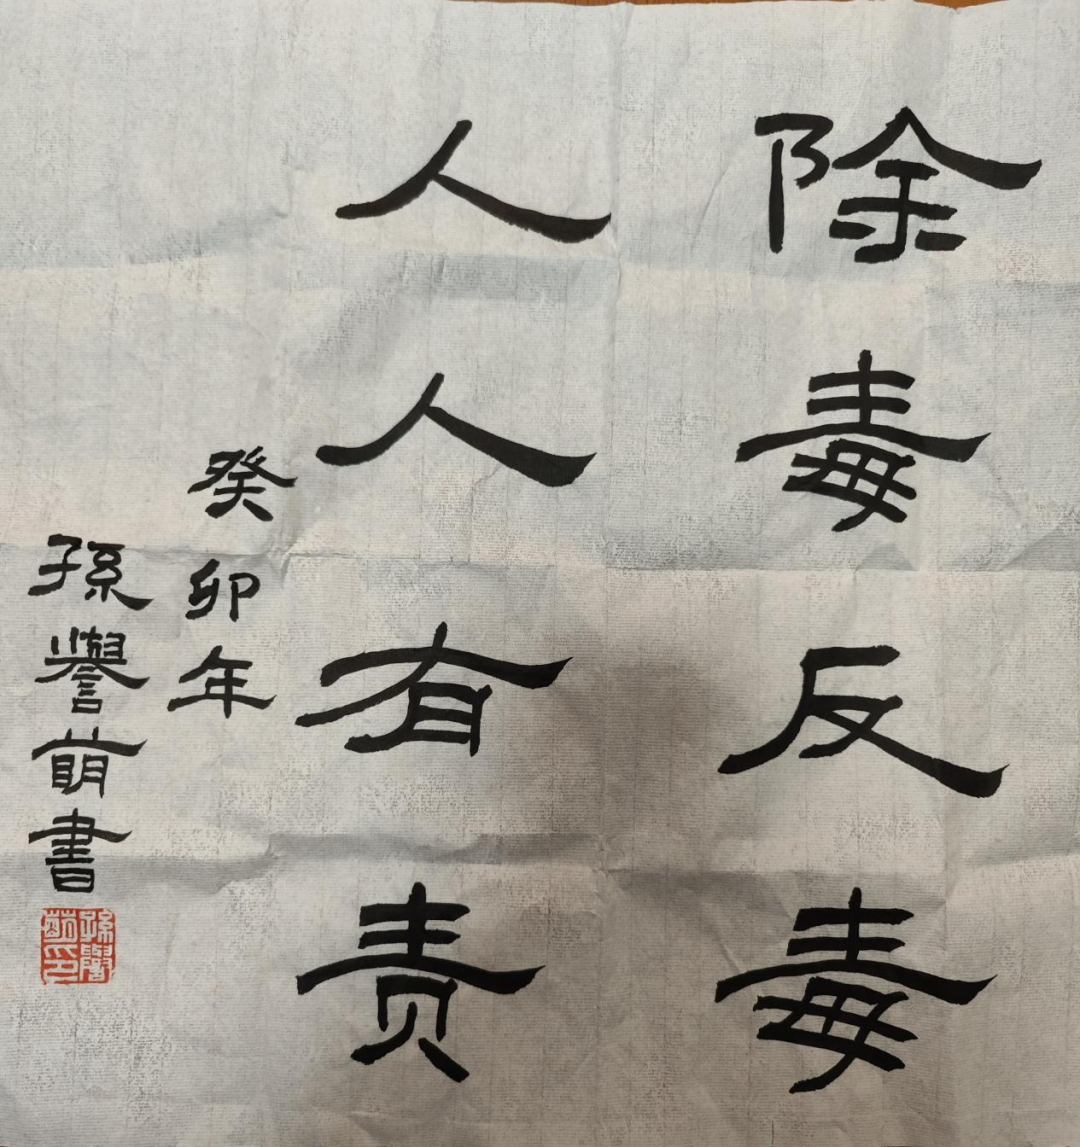 除毒反毒
人人有责
癸卯年
孫譽萌書
孫譽萌印